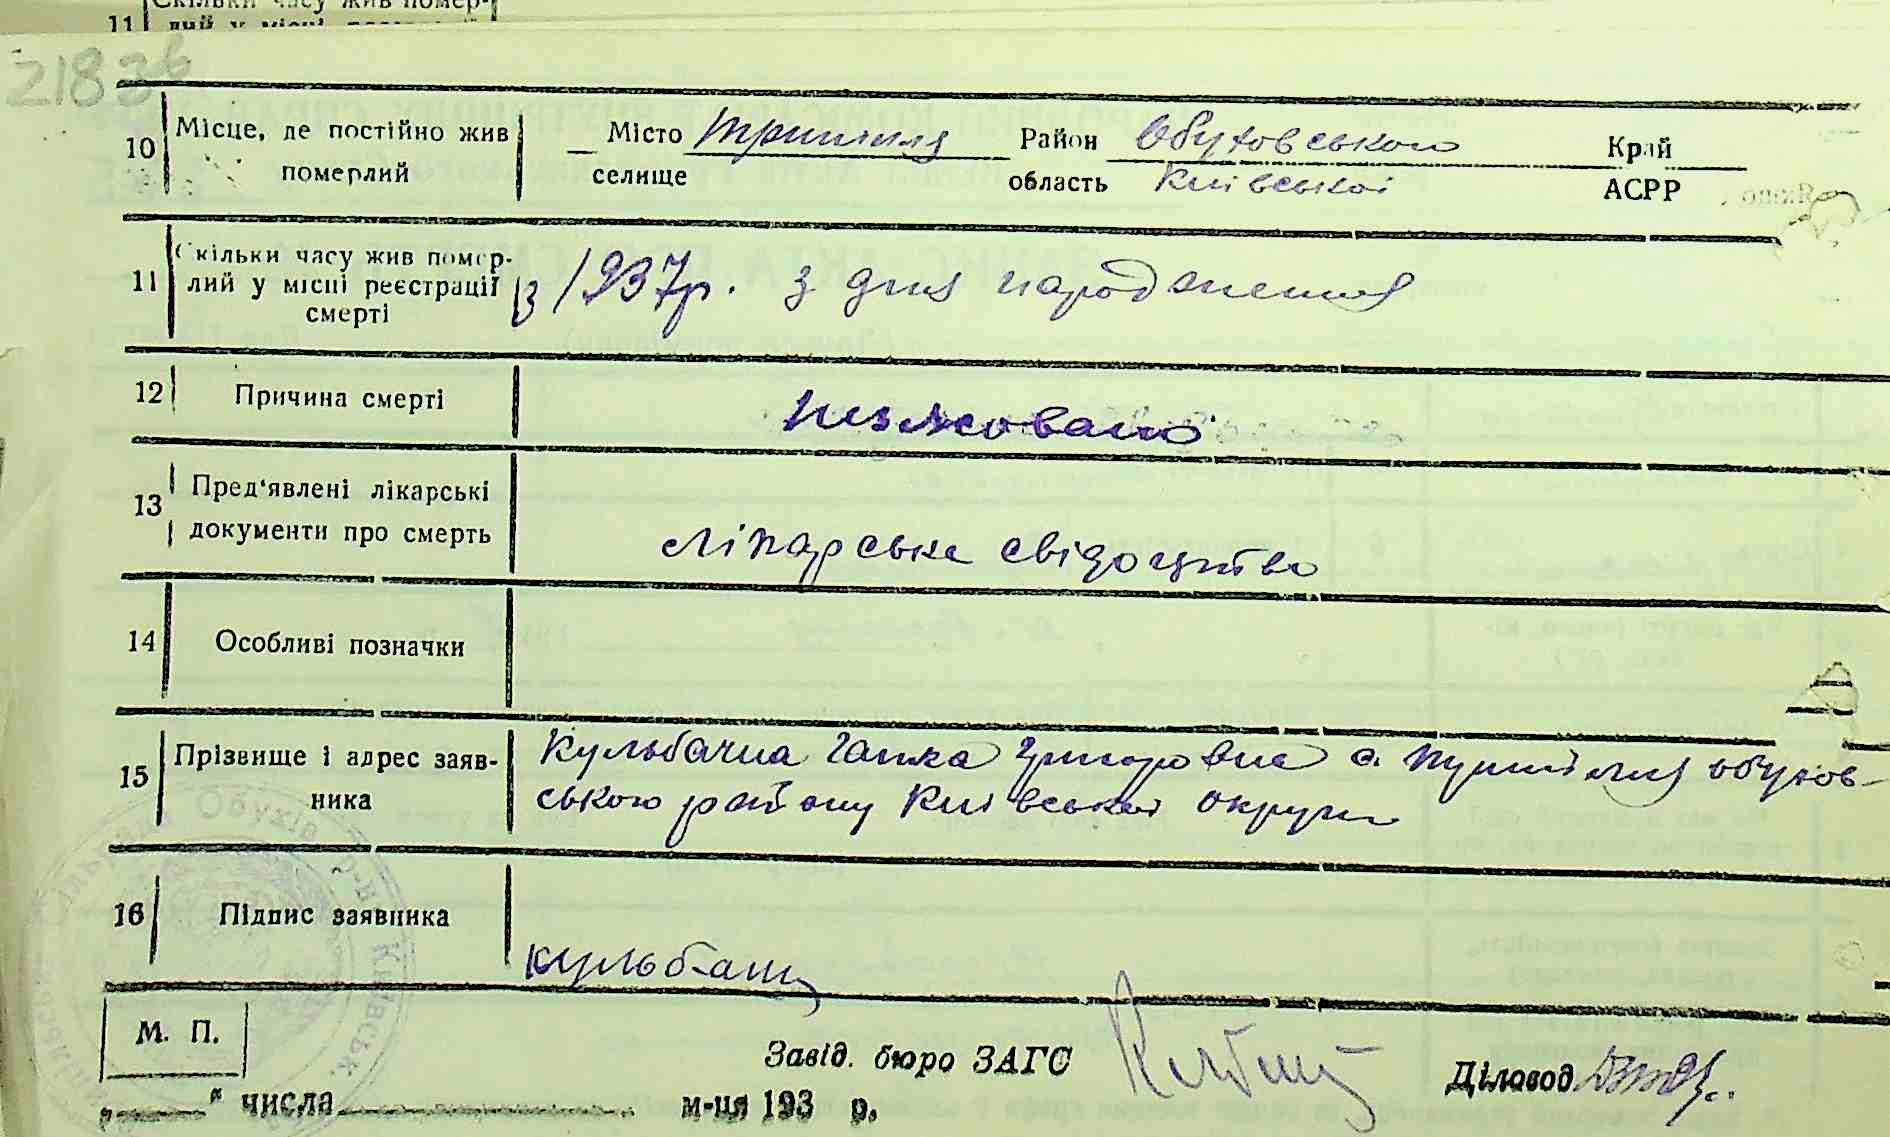 Скільки часу жив помер-
11 лий у місці
2183
10 Місце, де постійно жив померлий
Місто Трипілля Район Обуховського Край
селище область Київської АСРР
11 Скільки часу жив помер-
лий у місці реєстрації
смерті
з 1937р. з дня народження
12 Причина смерті
13 Пред'явлені лікарські
документи про смерть
лікарське свідоцтво
14 Особливі позначки
15 Прізвище і адрес заяв-
ника
Кульбачна Гапка Григоровна с. Трипілля обухов-
ського району Київської округи
16 Підпис заявника
М. П.
Завід. бюро ЗАГС
Діловод
„ " числа м-ця 193 р.